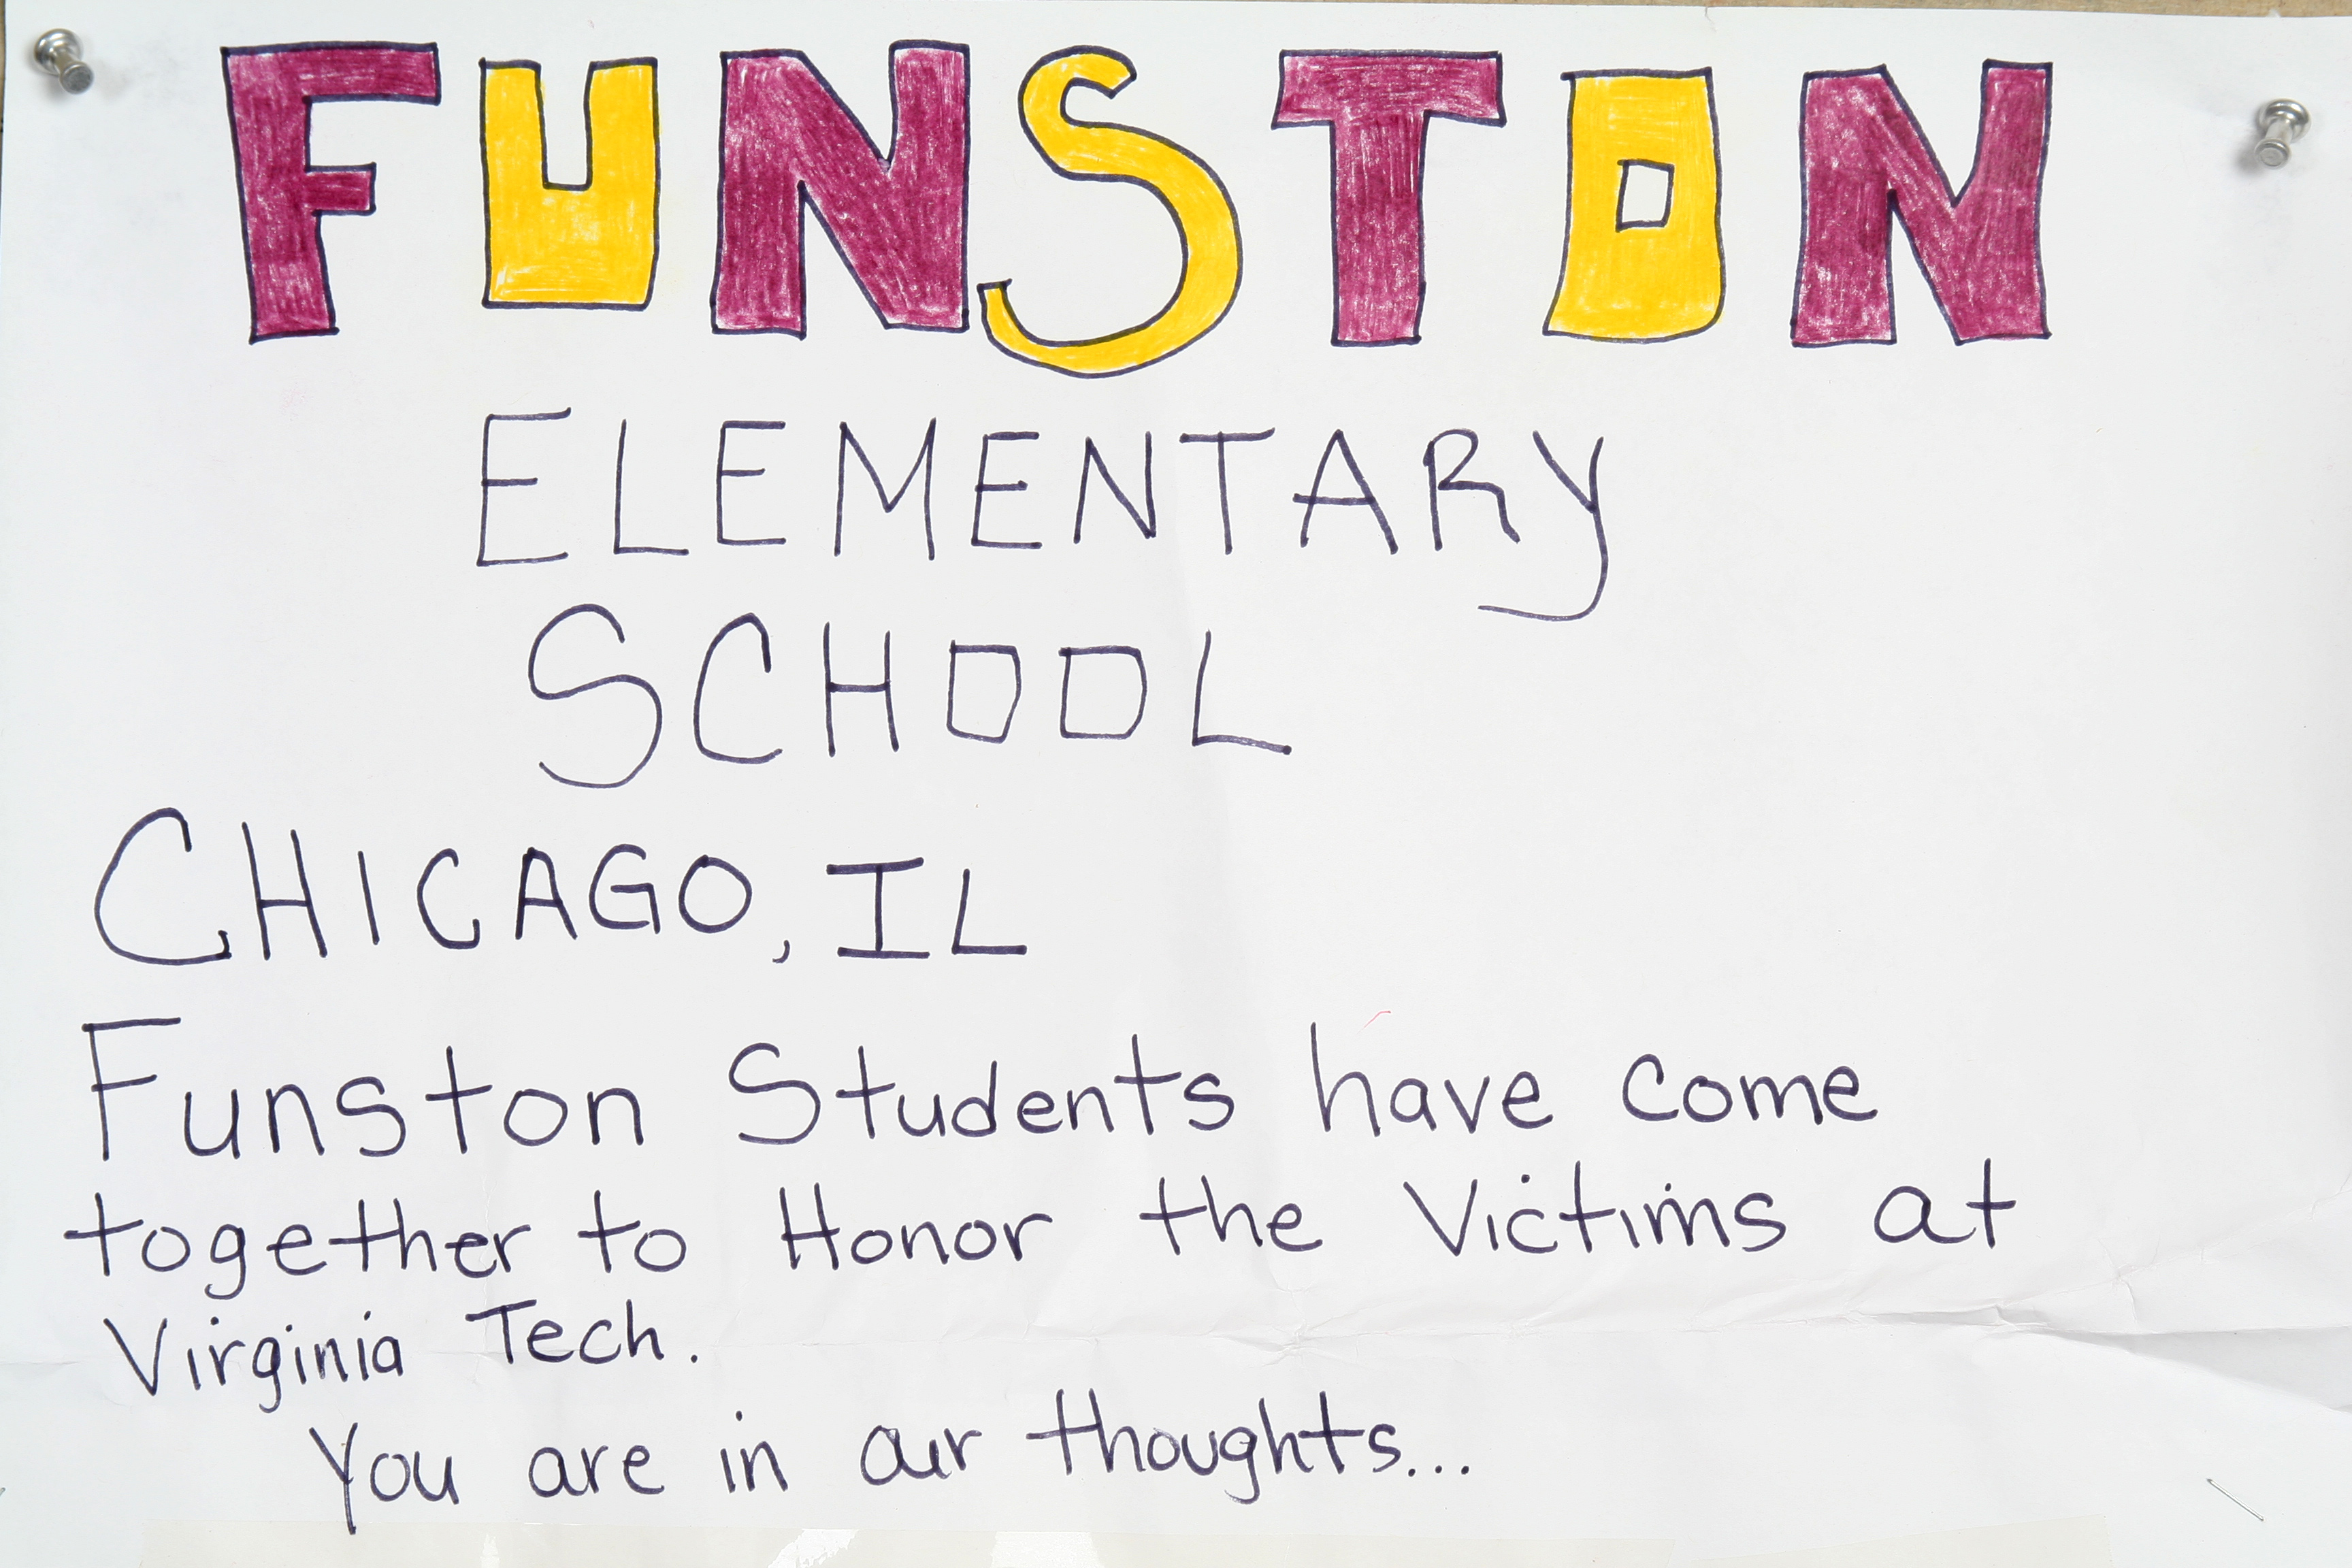 FUNSTON
ELEMENTARY
SCHOOL
CHICAGO, IL
Funston Students have come
together to Honor the Victims at
Virginia Tech.
You are in our thoughts...